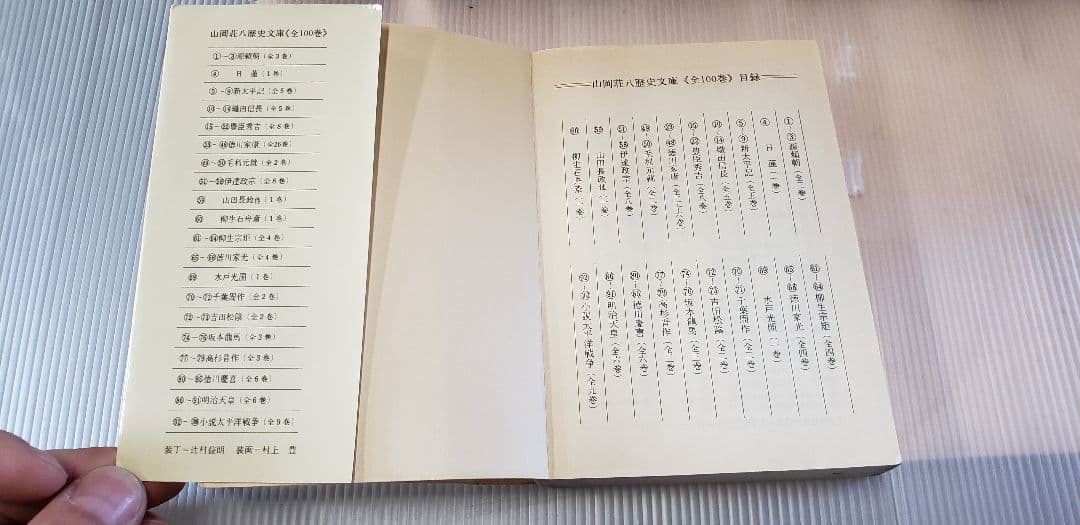 山岡荘八歴史文庫《全100巻》
①-③源頼朝(全3巻)
④ 日蓮(1巻)
⑤-⑨新太平記(全5巻)
⑩-⑭織田信長(全5巻)
⑮-㉒豊臣秀吉(全8巻)
㉓-㊽徳川家康(全26巻)
㊾-㊿毛利元就(全2巻)
伊達政宗(全8巻)
山田長政他(1巻)
柳生石舟斎(1巻)
柳生宗矩(全4巻)
徳川家光(全4巻)
水戸光圀(1巻)
千葉周作(全2巻)
吉田松陰(全2巻)
坂本龍馬(全3巻)
高杉晋作(全3巻)
徳川慶喜(全6巻)
明治天皇(全6巻)
小説太平洋戦争(全9巻)
装丁-辻村益朗 装画-村上 豊
山岡荘八歴史文庫《全100巻》目録
①-③源頼朝(全三巻)
④ 日蓮(一巻)
⑤-⑨新太平記(全五巻)
⑩-⑭織田信長(全五巻)
⑮-㉒豊臣秀吉(全八巻)
㉓-㊽徳川家康(全二十六巻)
㊾-㊿毛利元就(全二巻)
伊達政宗(全八巻)
山田長政他(一巻)
柳生石舟斎(一巻)
柳生宗矩(全四巻)
徳川家光(全四巻)
水戸光圀(一巻)
千葉周作(全二巻)
吉田松陰(全二巻)
坂本龍馬(全三巻)
高杉晋作(全三巻)
徳川慶喜(全六巻)
明治天皇(全六巻)
小説太平洋戦争(全九巻)